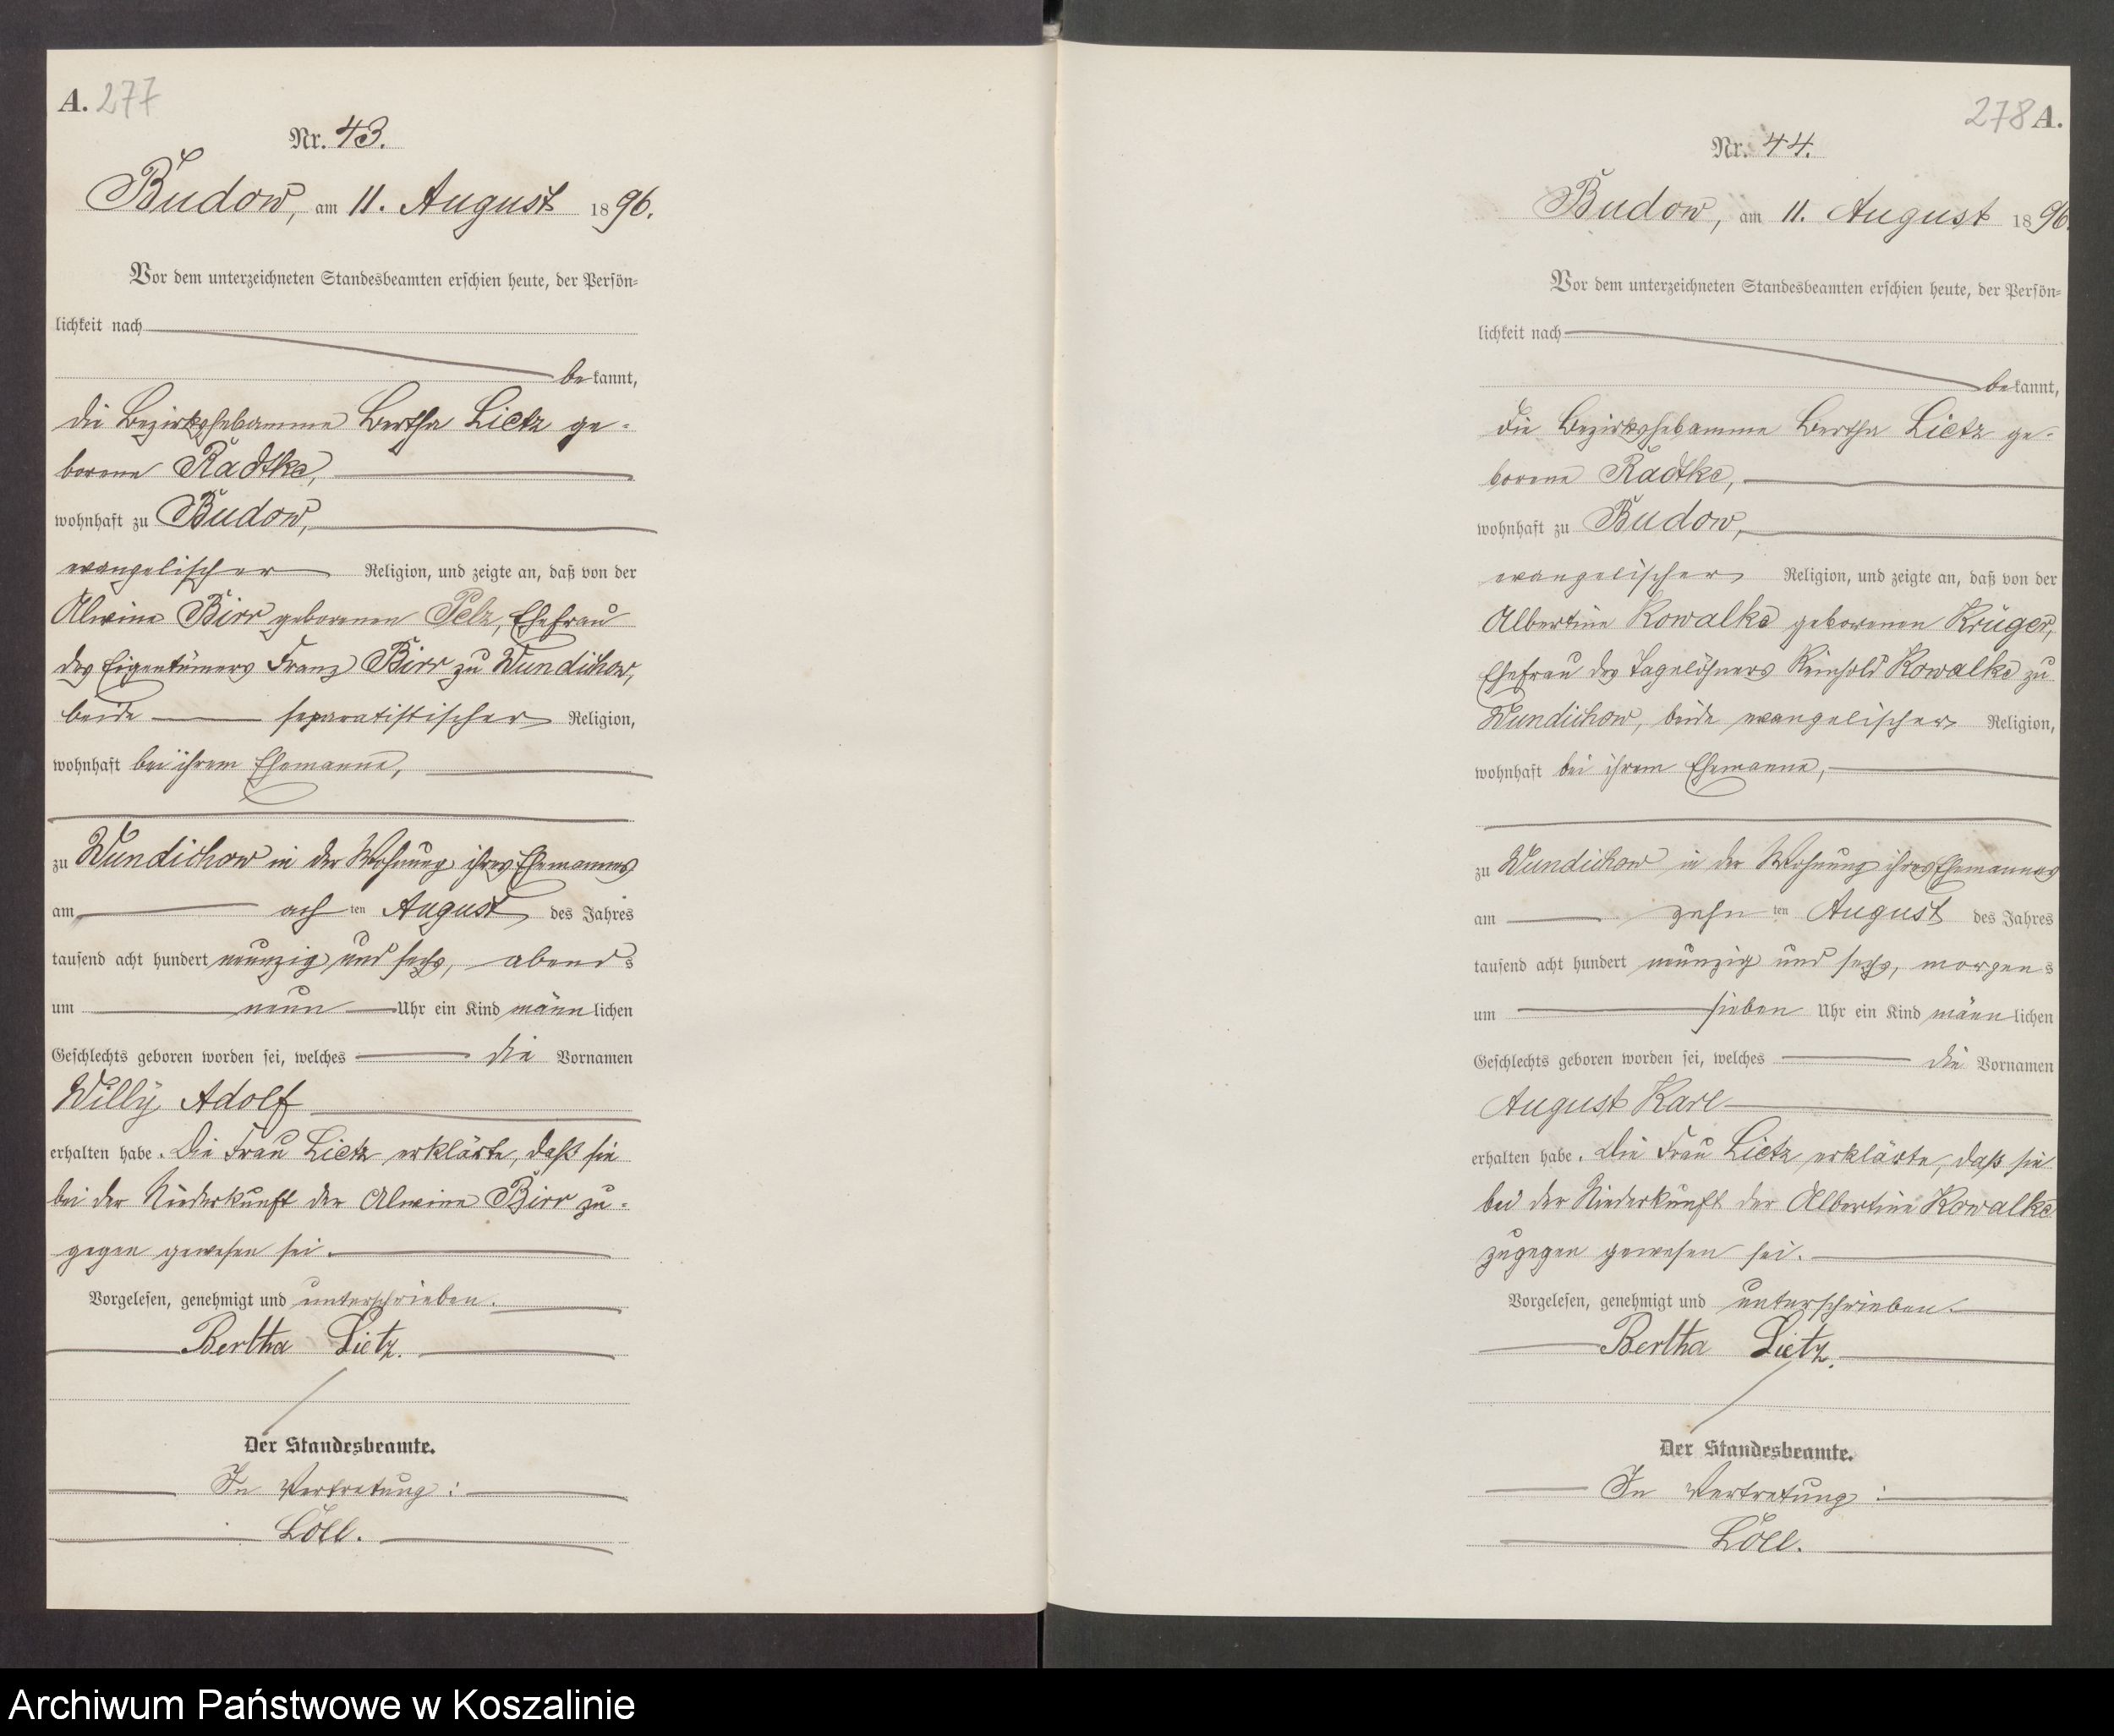 A. 277
Nr. 43.
Budow, am 11. August 1896.
Vor dem unterzeichneten Standesbeamten erschien heute, der Persön-
lichkeit nach
bekannt,
die Bezirkshebamme Bertha Lietz ge-
borene Radtke,
wohnhaft zu Budow,
evangelischer Religion, und zeigte an, daß von der
Alwine Birr geborenen Pelz, Ehefrau
des Eigentümers Franz Birr zu Wundichow,
beide separatistischer Religion,
wohnhaft bei ihrem Ehemanne,
zu Wundichow in der Wohnung ihres Ehemannes
am achten August des Jahres
tausend acht hundert neunzig und sechs, abends
um neun Uhr ein Kind männlichen
Geschlechts geboren worden sei, welches die Vornamen
Willÿ Adolf
erhalten habe. Die Frau Lietz erklärte, daß sie
bei der Niederkunft der Alwine Birr zu-
gegen gewesen sei.
Vorgelesen, genehmigt und unterschrieben.
Bertha Lietz.
Der Standesbeamte.
In Vertretung:
Löll.
278 A.
Nr. 44.
Budow, am 11. August 1896.
Vor dem unterzeichneten Standesbeamten erschien heute, der Persön-
lichkeit nach
bekannt,
die Bezirkshebamme Bertha Lietz ge-
borene Radtke,
wohnhaft zu Budow,
evangelischer Religion, und zeigte an, daß von der
Albertine Kowalke geborenen Krüger,
Ehefrau des Tagelöhners Reinhold Kowalke zu
Wundichow, beide evangelischer Religion,
wohnhaft bei ihrem Ehemanne,
zu Wundichow in der Wohnung ihres Ehemannes
am zehnten August des Jahres
tausend acht hundert neunzig und sechs, morgens
um sieben Uhr ein Kind männlichen
Geschlechts geboren worden sei, welches die Vornamen
August Karl
erhalten habe. Die Frau Lietz erklärte, daß sie
bei der Niederkunft der Albertine Kowalke
zugegen gewesen sei.
Vorgelesen, genehmigt und unterschrieben.
Bertha Lietz.
Der Standesbeamte.
In Vertretung:
Löll.
Archiwum Państwowe w Koszalinie